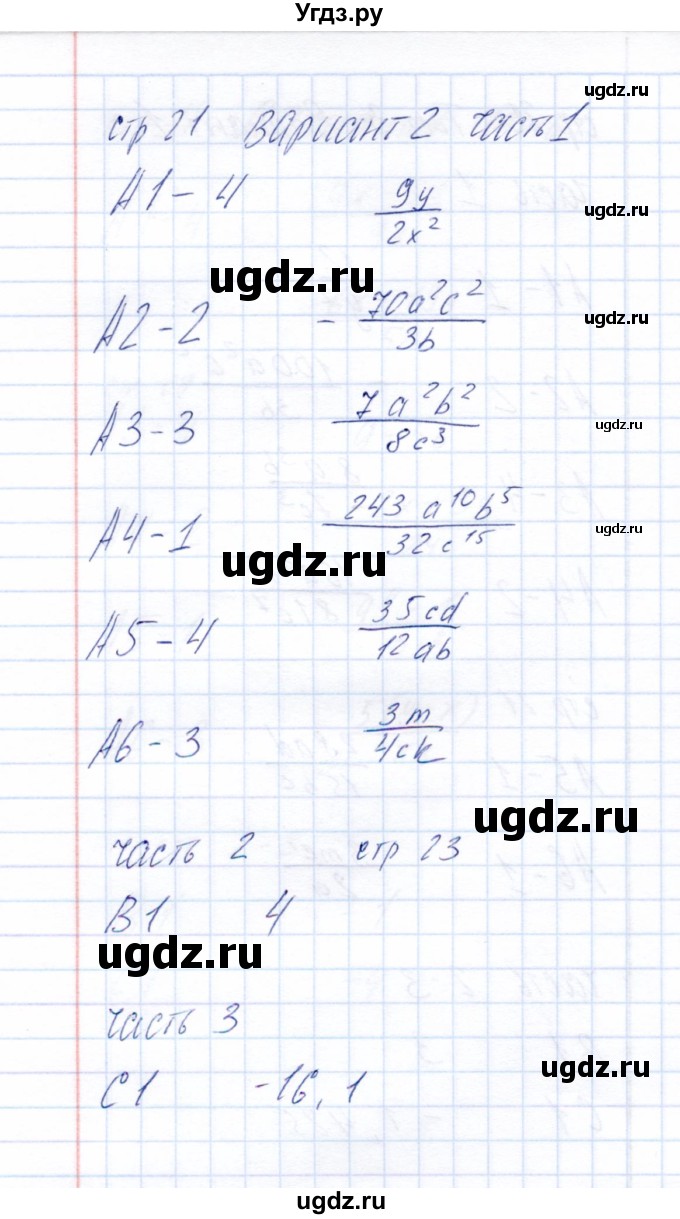 Угдз.ру
ugdz.ru
стр 21 вариант 2 часть 1
A1 – 4 9y/2x²
ugdz.ru
ugdz.ru
A2 – 2 – 70a²c²/3b
ugdz.ru
A3 – 3 7a²b²/8c³
ugdz.ru
A4 – 1 243a¹⁰b⁵/32c¹⁵
ugdz.ru
ugdz.ru
A5 – 4 35cd/12ab
A6 – 3 3m/4ck
ugdz.ru
часть 2 стр 23
B1 4
ugdz.ru
часть 3
ugdz.ru
C1 -16,1
ugdz.ru